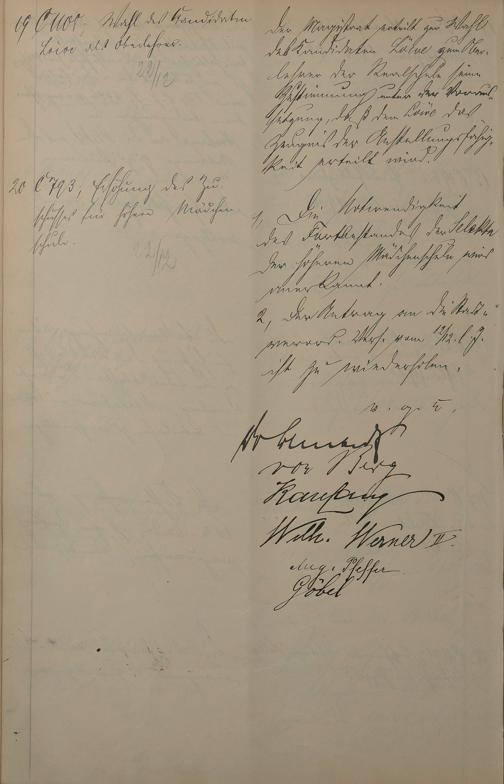 19 C 1105. Wahl des Kandidaten
Löwe als Oberlehrer.
22/12
Der Magistrat erteilt zur Wahl
des Kandidaten Löwe zum Ober-
lehrer der Realschule seine
Zustimmung unter der Voraus-
setzung, daß dem Löwe das
Zeugnis der Anstellungsfähig-
keit erteilt wird.
20 C 793, Erhöhung des Zu-
schusses für höhere Mädchen-
schule.
22/12
1, Die Notwendigkeit
des Fortbestandes der Selekta
der höheren Mädchenschule wird
anerkannt.
2, Der Antrag an die Stadt-
verord. Vers. vom 12/12. l. J.
ist zu wiederholen.
v. g. u.
von Berg
Wilh. Werner II.
Aug. Pfeffer
Göbel